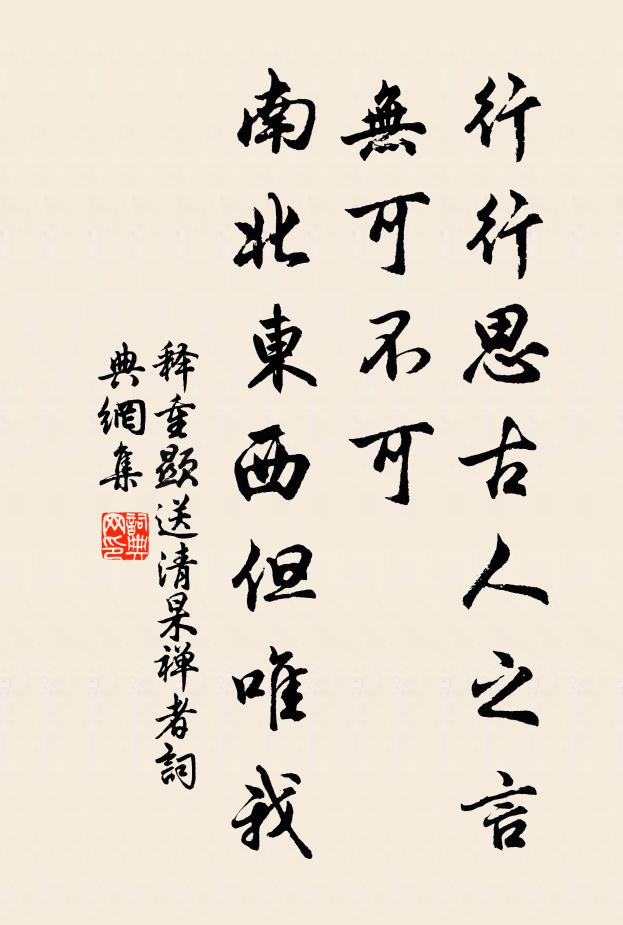 行行思古人之言
無可不可
南北東西但唯我
释重顯送清杲禅者詞
典網集
詞典
网印